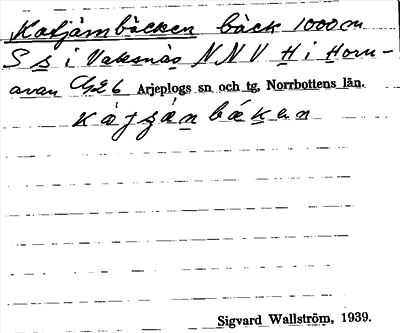 Katjåmbäcken bäck 1000 m
S s i Vaksnäs N N V H i Horn-
avan G26 Arjeplogs sn och tg, Norrbottens län.
Sigvard Wallström, 1939.